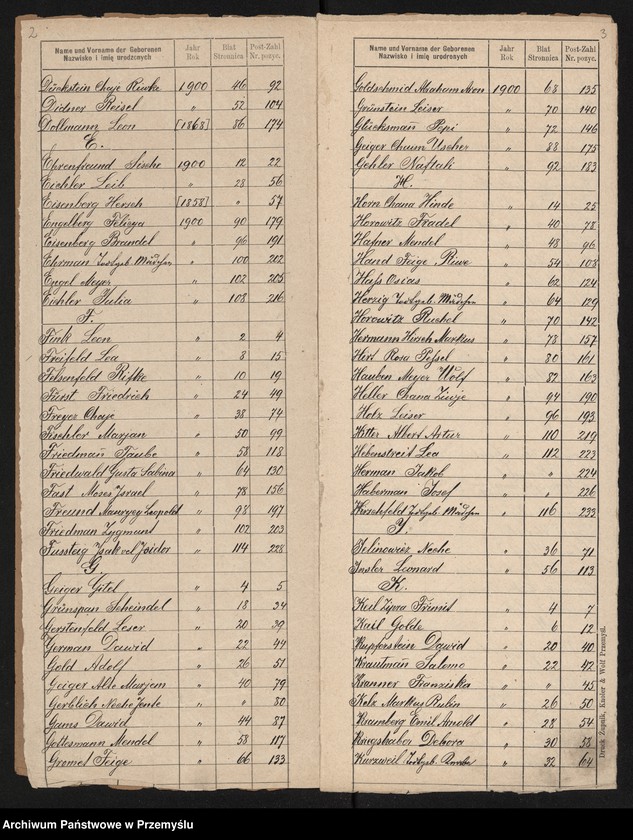 2
Name und Vorname der Geborenen Jahr Blatt Post-Zahl
Nazwisko i imię urodzonych Rok Stronnica Nr. pozyc.
Dückstein Chaje Riwke 1900 46 92
Didner Reisel " 52 104
Dollmann Leon [1868] 86 174
E.
Ehrenfreund Sische 1900 12 22
Eichler Leib " 28 56
Eisenberg Hersch [1858] " 57
Engelberg Felicya 1900 90 179
Eisenberg Brandel " 96 191
Ehrman Todtgeb. Mädchen " 100 202
Engel Meyer " 102 205
Eichler Julia " 108 216
F.
Fink Leon " 2 4
Freifeld Lea " 8 15
Felsenfeld Rifke " 10 19
Fürst Friedrich " 24 49
Freyer Chaje " 38 74
Fischler Marjan " 50 99
Friedmann Taube " 58 118
Friedwald Gusta Sabina " 64 130
Fast Moses Israel " 78 156
Freund Maurycy Leopold " 98 197
Friedman Zygmunt " 102 203
Fussteig Isak vel Isidor " 114 228
G
Geiger Gitel " 4 5
Grünspan Scheindel " 18 34
Gerstenfeld Leser " 20 39
German Dawid " 22 44
Gold Adolf " 26 51
Geiger Alte Marjem " 40 79
Gerblich Neche Jente " " 80
Gans Dawid " 44 87
Gottesmann Mendel " 58 117
Gromet Feige " 66 133
3
Name und Vorname der Geborenen Jahr Blatt Post-Zahl
Nazwisko i imię urodzonych Rok Stronnica Nr. pozyc.
Goldschmid Abraham Aron 1900 68 135
Grünstein Leiser " 70 140
Glücksmann Pepi " 72 146
Geiger Chaim Uscher " 88 175
Gehler Naftali " 92 183
H.
Horn Chana Hinde " 14 25
Horowitz Fradel " 40 78
Hafner Mendel " 48 96
Hand Feige Riwe " 54 108
Hass Osias " 62 124
Herzig Todtgeb. Mädchen " 64 129
Horowitz Ruchel " 70 142
Hermann Hirsch Markus " 78 157
Hirt Rosa Pessel " 80 161
Hauben Meyer Wolf " 82 163
Heller Chana Ziwje " 94 190
Holz Leiser " 96 193
Hitter Albert Artur " 110 219
Hebenstreit Lea " 112 223
Herman Jakob " " 224
Haberman Josef " " 226
Hirschfeld Todtgeb. Mädchen " 116 233
J.
Jelinowicz Neche " 36 71
Insler Leonard " 56 113
K.
Keil Zipra Frimit " 4 7
Kail Golde " 6 12
Kupferstein Dawid " 20 40
Krautmann Salomo " 22 42
Kranner Franziska " " 45
Kelz Markus Rubin " 26 50
Kramberg Emil Arnold " 28 54
Kriegshaber Debora " 30 58
Kurzweil Todtgeb. " 32 64
Druk Żupnik, Knoller & Wolf Przemyśl.
Archiwum Państwowe w Przemyślu